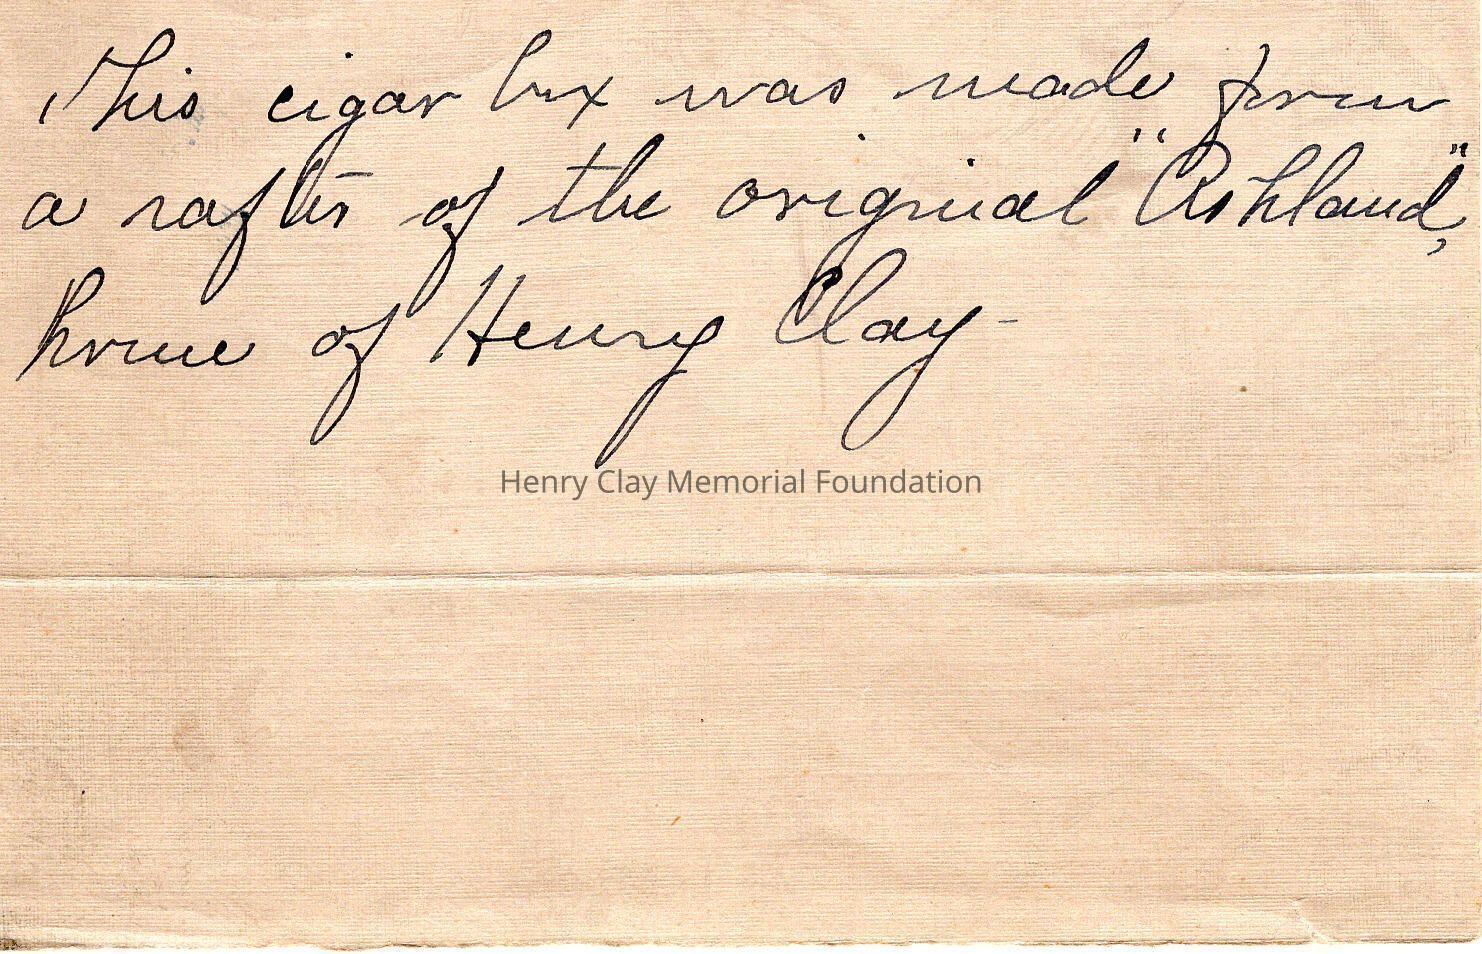 This cigar box was made from
a rafter of the original "Ashland",
home of Henry Clay-
Henry Clay Memorial Foundation